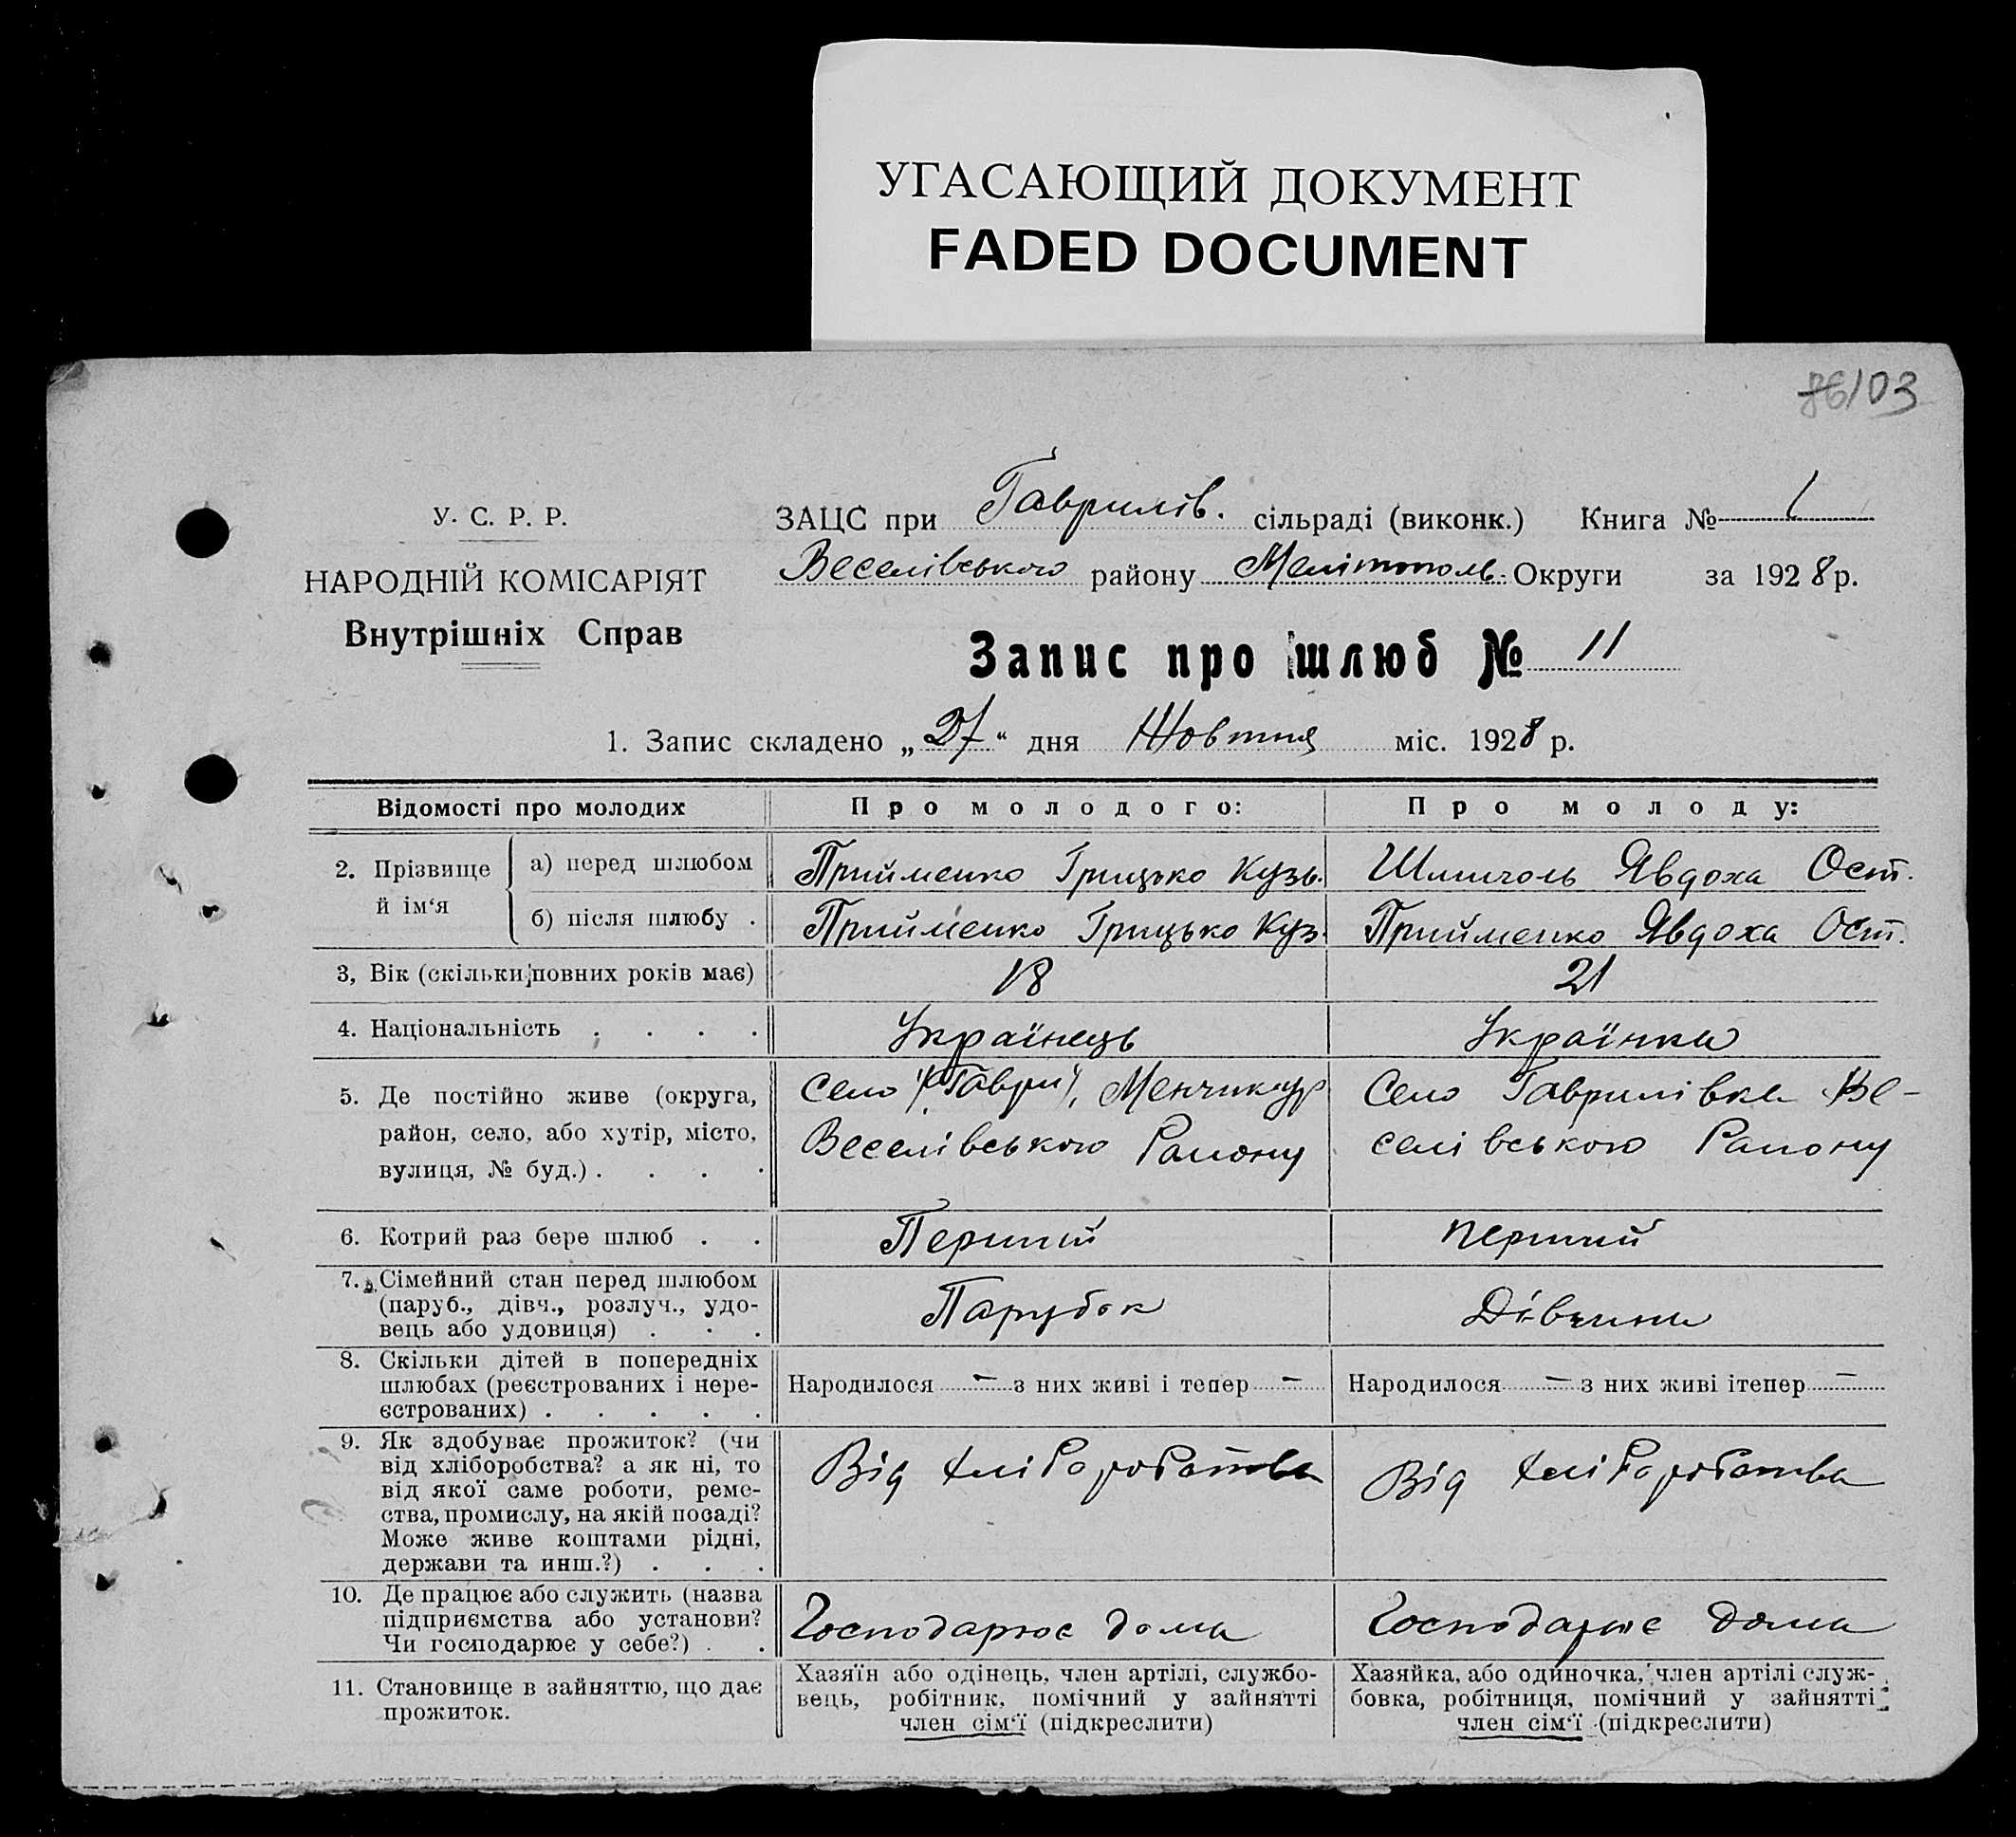 УГАСАЮЩИЙ ДОКУМЕНТ
FADED DOCUMENT
86 103
У. С. Р. Р.
НАРОДНІЙ КОМІСАРІЯТ
Внутрішніх Справ
ЗАЦС при Гаврилів. сільраді (виконк.) Книга № 1
Веселівського району Мелітополь. Округи за 1928 р.
Запис про шлюб № 11
1. Запис складено „27“ дня Жовтня міс. 1928 р.
Відомості про молодих
Про молодого:
Про молоду:
2. Прізвище й ім‘я
а) перед шлюбом
Прийменко Грицько Кузь.
Явдоха Ост.
б) після шлюбу .
Прийменко Грицько Куз.
Прийменко Явдоха Ост.
3, Вік (скільки повних років має)
18
21
4. Національність . . . .
Українець
Українка
5. Де постійно живе (округа,
район, село, або хутір, місто,
вулиця, № буд.) . . . .
Село (Гаври), Менчикур
Веселівського Району
Село Гаврилівка Ве-
селівського Району
6. Котрий раз бере шлюб . .
Перший
перший
7. Сімейний стан перед шлюбом
(паруб., дівч., розлуч., удо-
вець або удовиця) . . .
Парубок
Дівчина
8. Скільки дітей в попередніх
шлюбах (реєстрованих і нере-
єстрованих) . . . . .
Народилося — з них живі і тепер —
Народилося — з них живі ітепер —
9. Як здобуває прожиток? (чи
від хліборобства? а як ні, то
від якої саме роботи, реме-
ства, промислу, на якій посаді?
Може живе коштами рідні,
держави та инш.?) . . .
Від хліборобства
Від хліборобства
10. Де працює або служить (назва
підприємства або установи?
Чи господарює у себе?) . .
Господарює дома
Господарює дома
11. Становище в зайняттю, що дає
прожиток.
Хазяїн або одінець, член артілі, службо-
вець, робітник, помічний у зайнятті
член сім‘ї (підкреслити)
Хазяйка, або одиночка, член артілі служ-
бовка, робітниця, помічний у зайнятті
член сім‘ї (підкреслити)